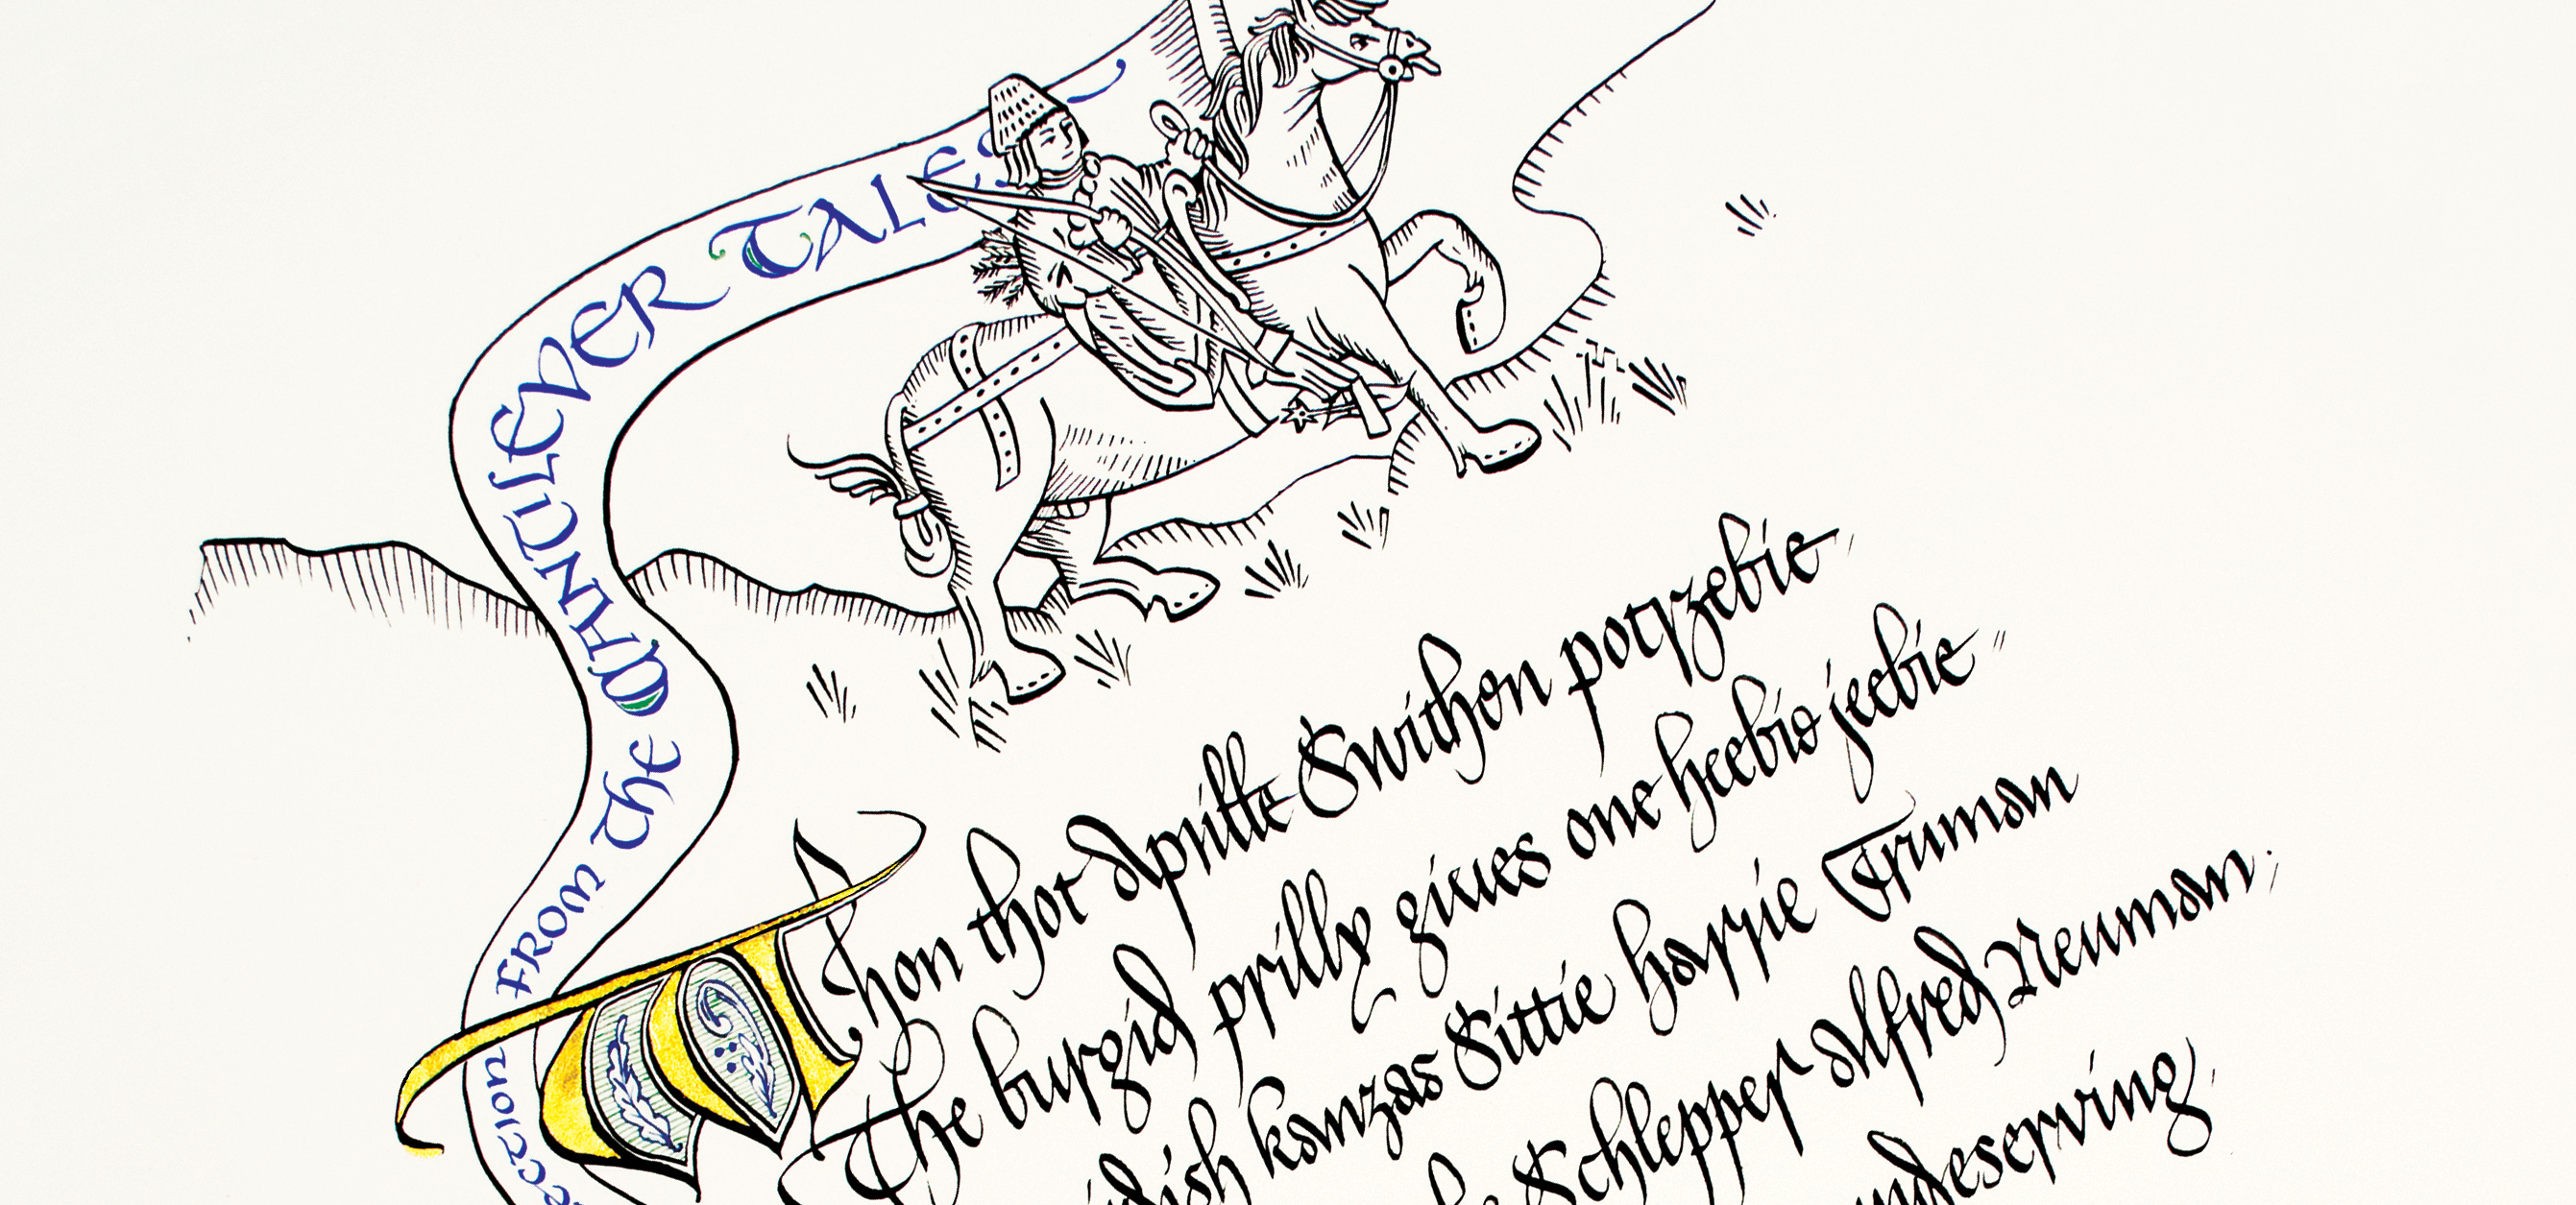 ction from The Cantilever Tales,
Whan that Aprille Swithan potrzebie,
The burgid prilly gives one heebie jeebie
dish kanzas Sittie harrie Truman
Schlepper Alfred Neuman.
undeserving,